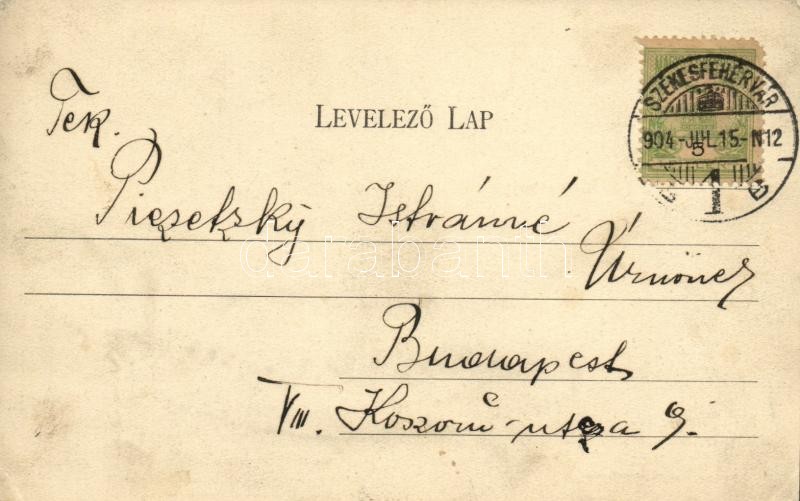 LEVELEZŐ LAP
SZÉKESFEHÉRVÁR
904-JUL.15-N12
5
1
Tek.
Piezetzky Istvánné
Úrnőnek
Budapest
VIII. Koszorú-utza 9.
darabanth